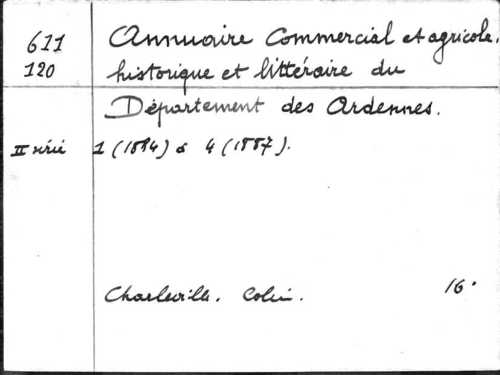 611 Annuaire Commercial et agricole,
120 historique et littéraire du
Département des Ardennes.
II série 1 (1884) à 4 (1887).
Charleville. Colin. 16°